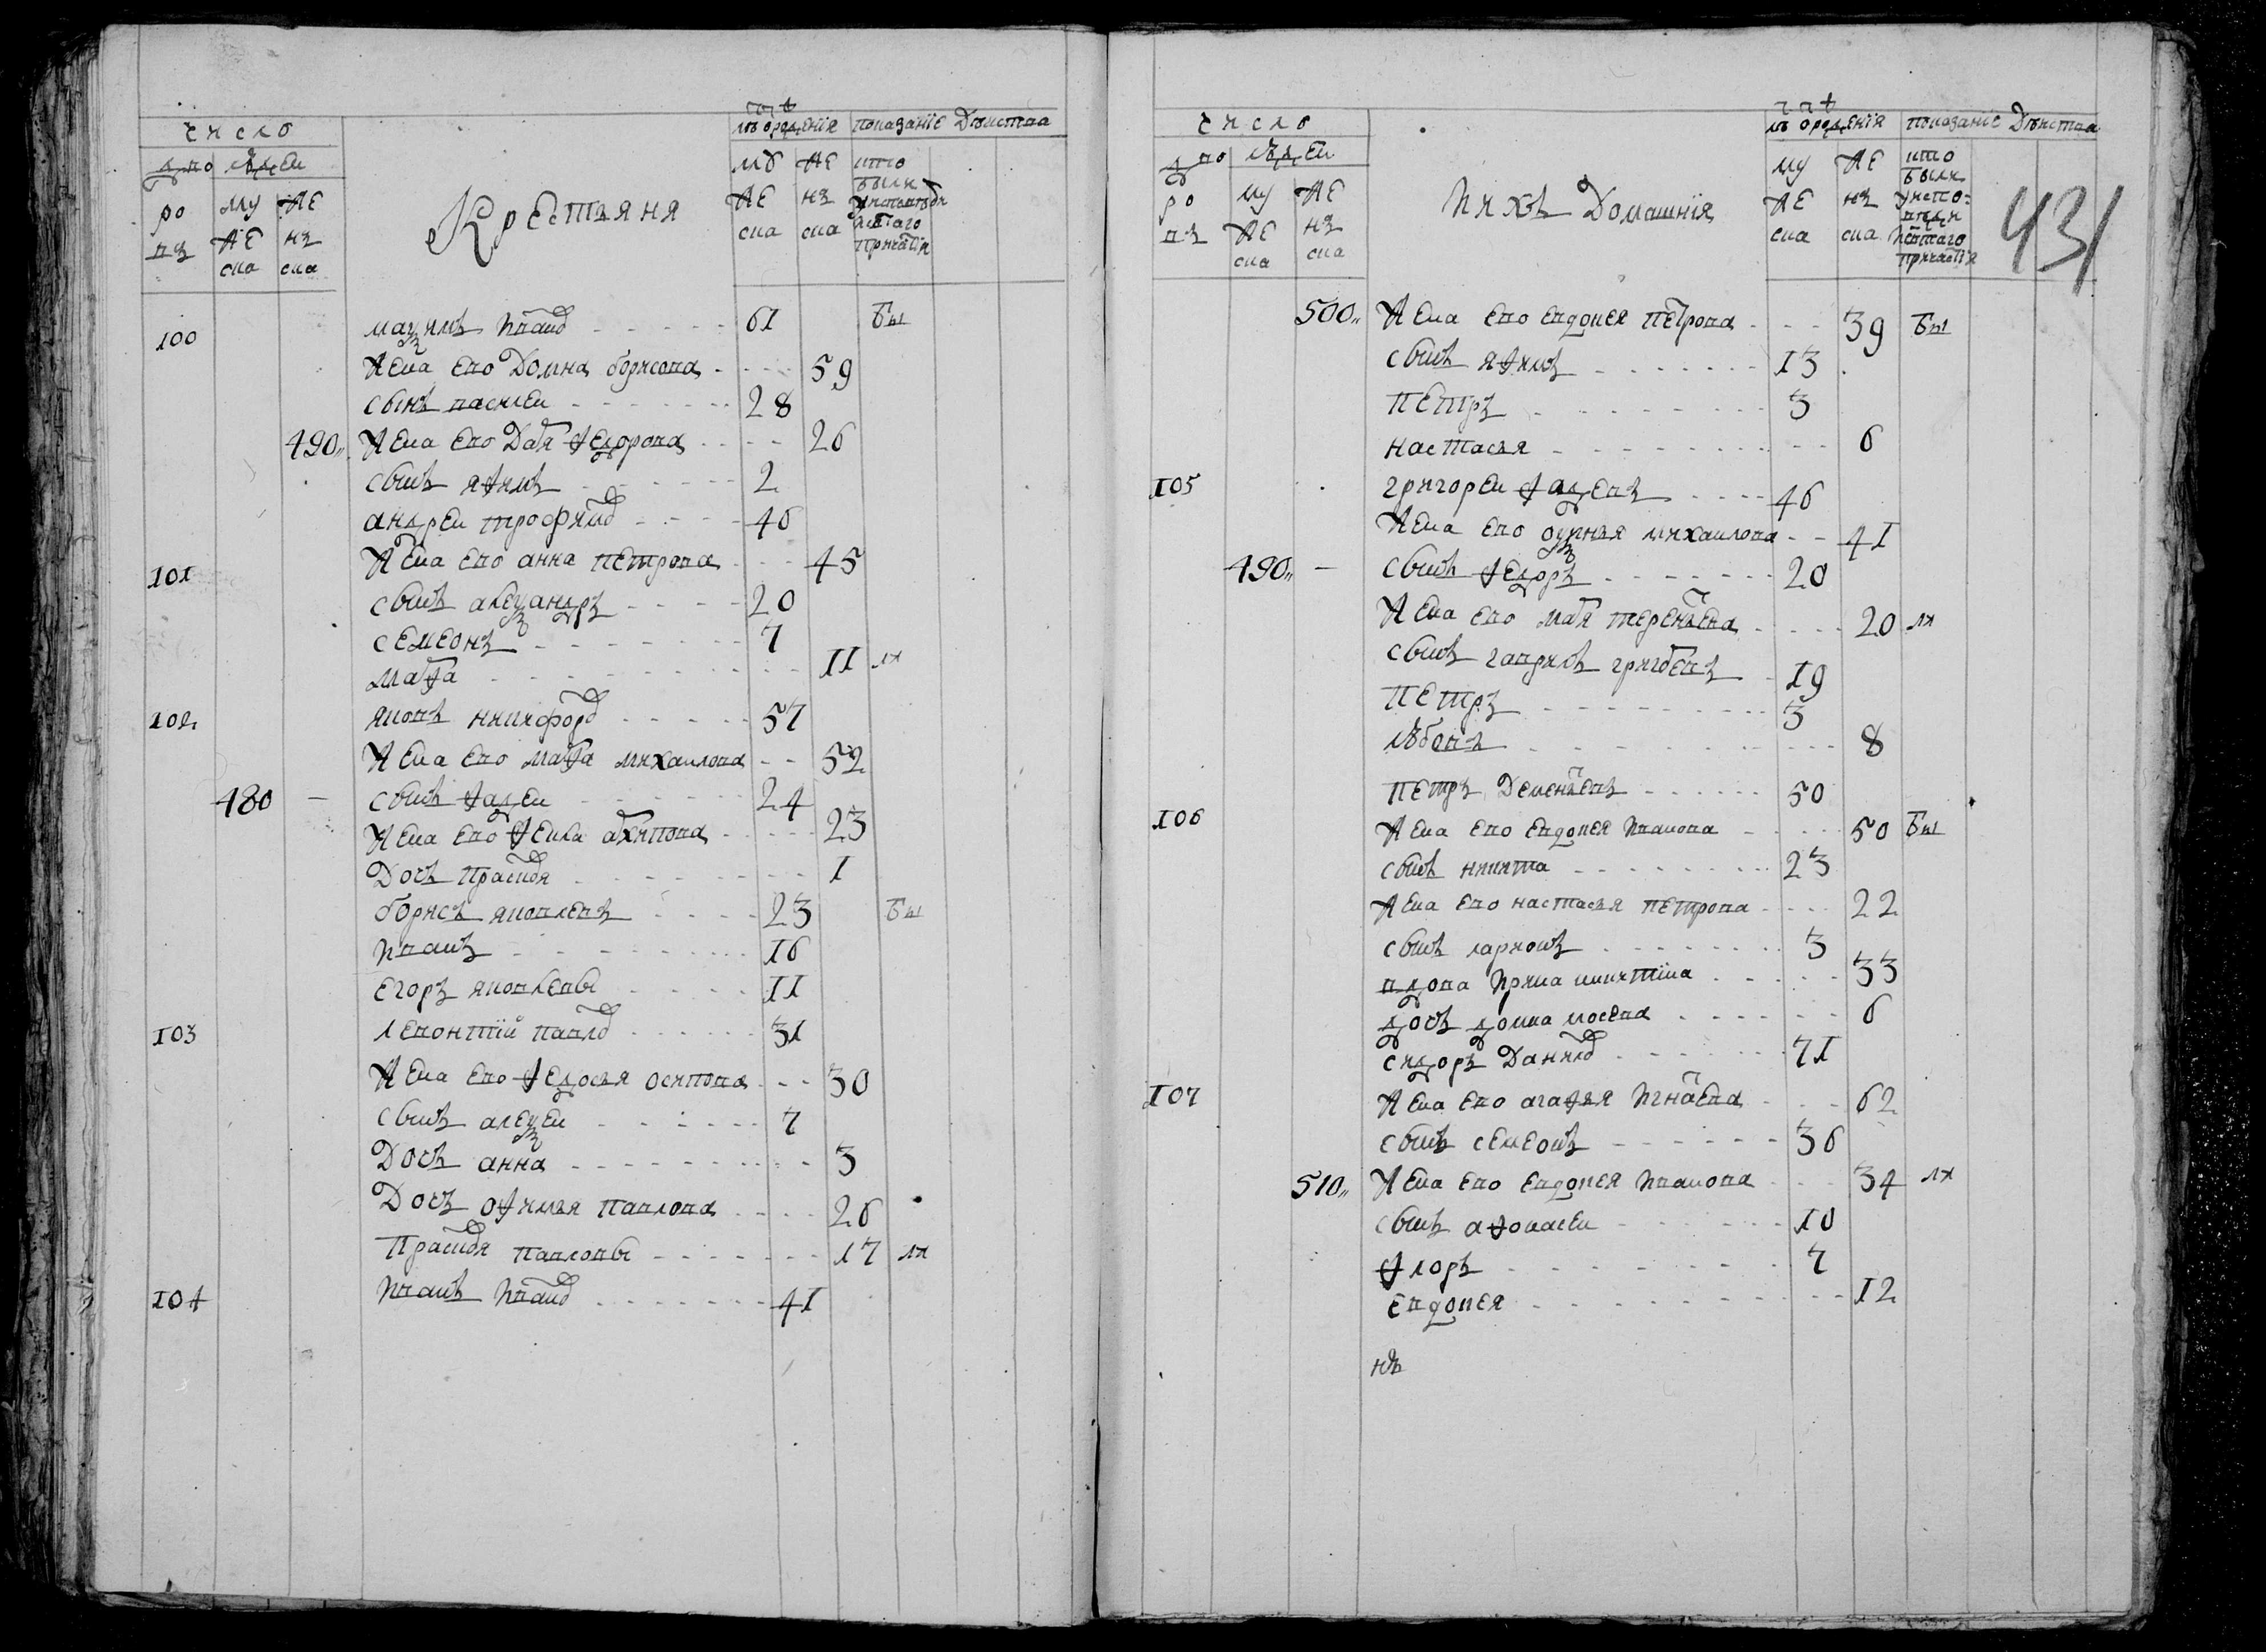 число
дво ров
людей
му же ска
же нз ска
Крестьяня
годъ от рожденія
му же ска
же нз ска
показаніе Действа
кто были у исповеди и святаго причастія
100 мазимъ Иванов 61 бы
жена ево Домна борисова 59
сынъ василей 28
490 жена ево Дарья федорова 26
сынъ яфимъ 2
андрей трофимов 46
101 жена ево анна петрова 45
сынъ алеѯандръ 20
семеонъ 7
марфа 11 лх
102 яковъ никифоров 57
жена ево марфа михаилова 52
480 сынъ фадей 24
жена ево фекла архипова 23
Дочь Прасковья 1
борисъ яковлевъ 23 бы
Иванъ 16
егоръ яковлевы 11
103 левонтїй павлов 31
жена ево федосья осипова 30
сынъ алеѯей 7
Дочь анна 3
Дочь офимья павлова 26
Прасковья павловы 17 лх
104 Иванъ Иванов 41
число
дво ров
людей
му же ска
же нз ска
Ихъ Домашнїя
годъ от рожденія
му же ска
же нз ска
показаніе Действа
кто были у исповеди и святаго причастія
431
500 жена ево евдокея петрова 39 бы
сынъ яфимъ 13
петръ 3
настасья 6
105 григорей фадеевъ 46
жена ево оѯинья михаилова 41
490 сынъ федоръ 20
жена ево марья терентьева 20 лх
сынъ гаврилъ григорьевъ 19
петръ 3
любовь 8
106 петръ Дементьевъ 50
жена ево евдокея Иванова 50 бы
сынъ никита 23
жена ево настасья петрова 22
сынъ ларионъ 3
вдова Ирина никитина 33
дочь домна 6
сидоръ Данилов 71
107 жена ево агафья Игнатьева 62
сынъ семеонъ 36
510 жена ево евдокея Иванова 34 лх
сынъ афонасей 10
флоръ 7
евдокея 12